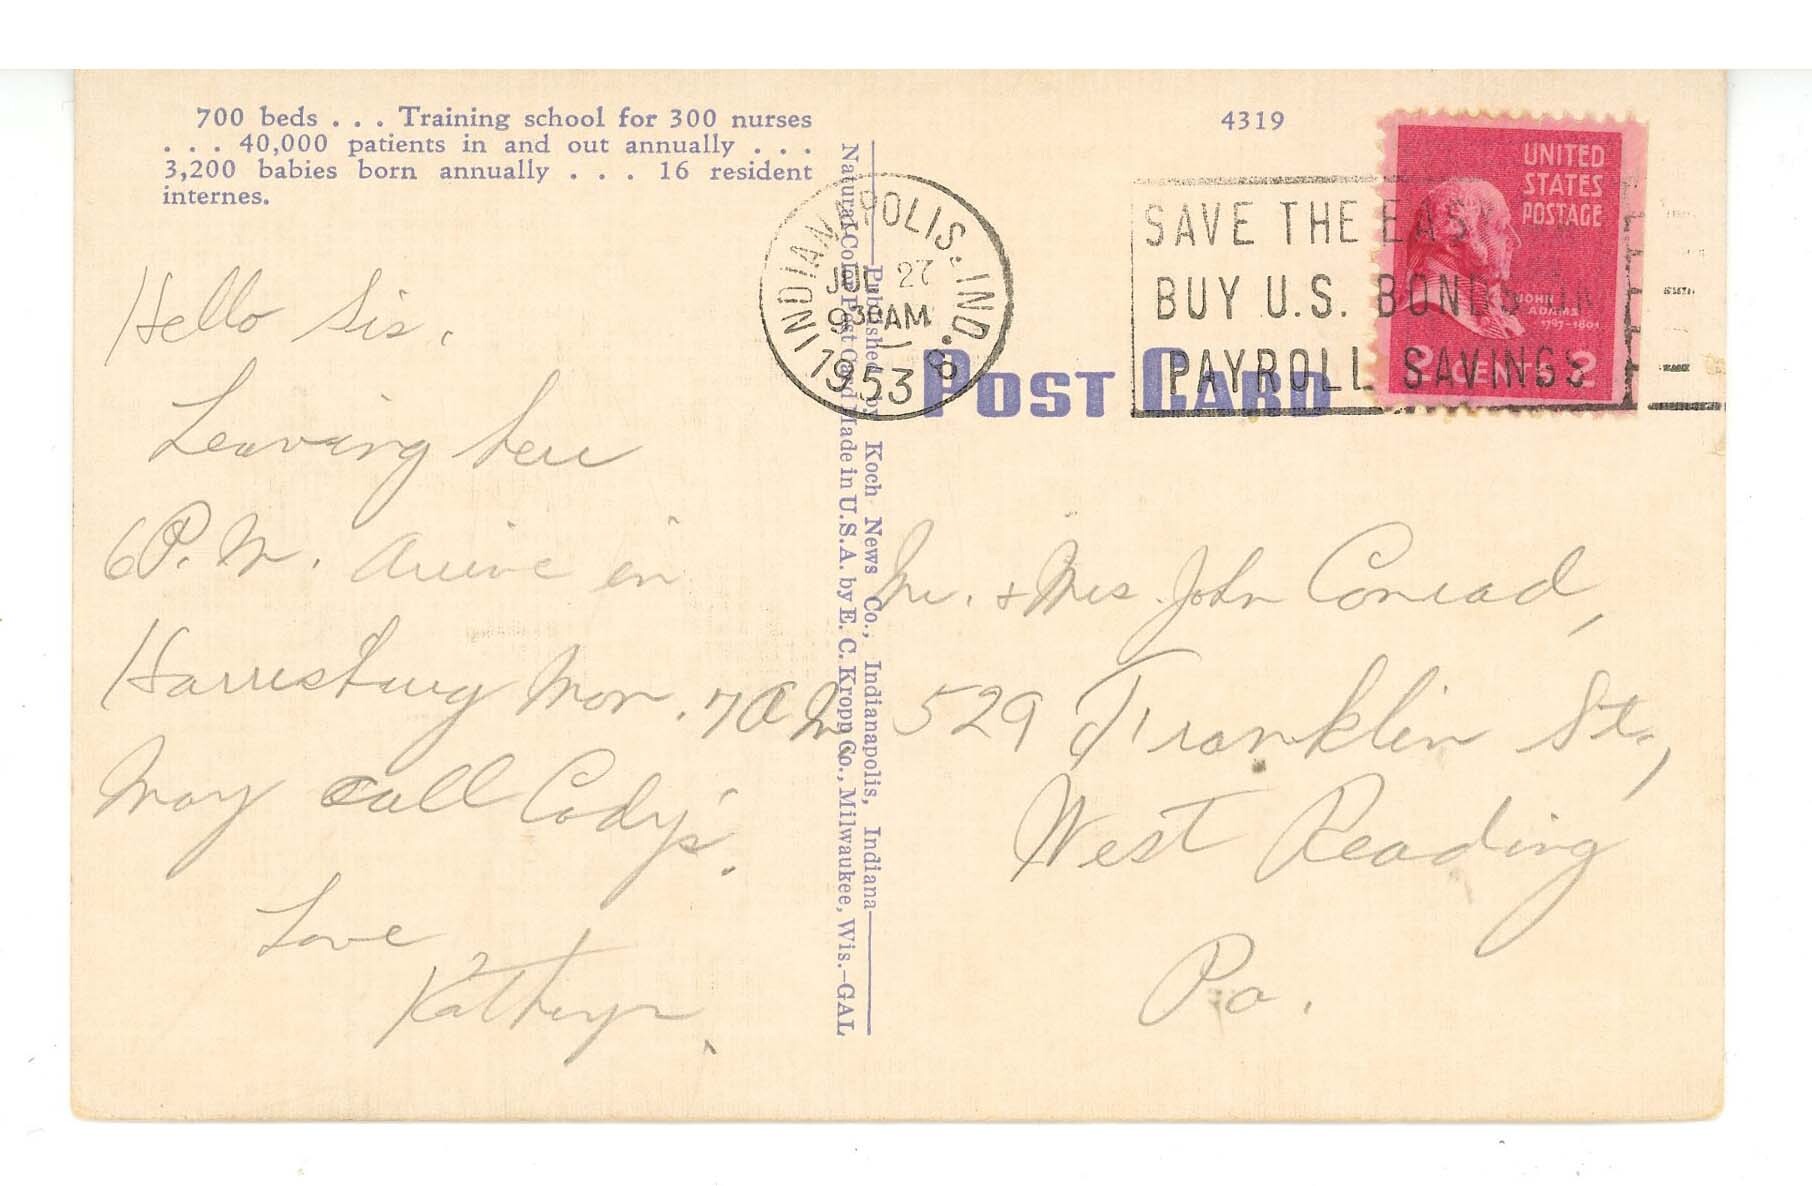 700 beds . . . Training school for 300 nurses
. . . 40,000 patients in and out annually . . .
3,200 babies born annually . . . 16 resident
internes.
Hello Sis.
Leaving here
6 P.M. Arrive in
Harrisburg Mon. 7 A M
May call Cody's.
Love
Kathryn.
Published by Koch News Co., Indianapolis, Indiana
Natural Color Post Card Made in U.S.A. by E. C. Kropp Co., Milwaukee, Wis.-GAL
4319
INDIANAPOLIS, IND. 8
JUL 27
9 30 AM
1953
SAVE THE EASY
BUY U.S. BONDS ON
PAYROLL SAVINGS
UNITED
STATES
POSTAGE
JOHN
ADAMS
1797-1801
2 CENTS 2
POST CARD
Mr. & Mrs. John Conrad,
529 Franklin St.,
West Reading
Pa.